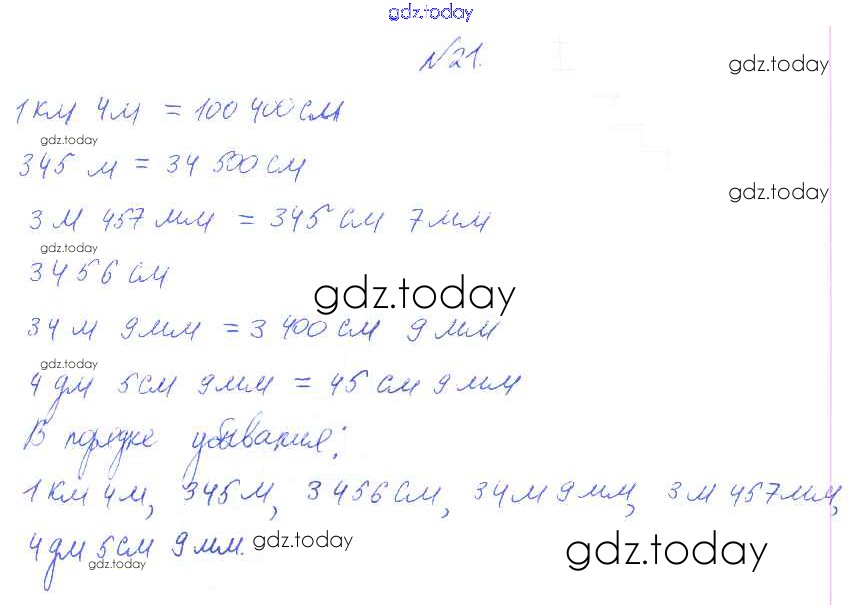 gdz.today
№21.
gdz.today
1 км 4 м = 100 400 см
gdz.today
345 м = 34 500 см
gdz.today
3 м 457 мм = 345 см 7 мм
gdz.today
3456 см
gdz.today
34 м 9 мм = 3 400 см 9 мм
gdz.today
4 дм 5 см 9 мм = 45 см 9 мм
В порядке убывания:
1 км 4 м, 345 м, 3 456 см, 34 м 9 мм, 3 м 457 мм,
4 дм 5 см 9 мм.
gdz.today
gdz.today
gdz.today